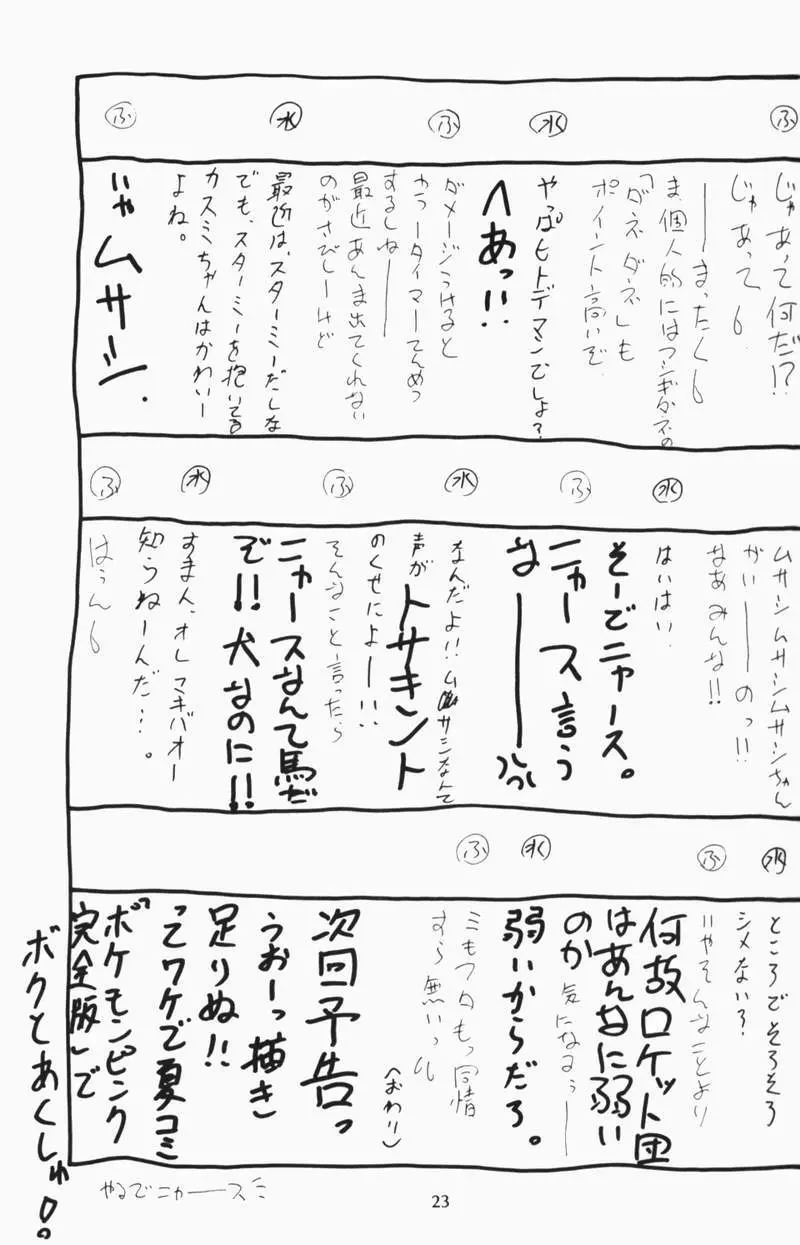 ふ
じゃあって何だ!?
じゃあって
――まったくも
ま、個人的にはフシギダネの
「ダネダネ」も
ポイント高いぞ。
水
やっぱヒトデマンでしょ?
ヘあっ!!
ふ
ダメージうけると
カラータイマーてんめつ
するしねー
最近あんま出てくれない
のがさびしーけど
水
最近は、スターミーだしな
でも、スターミーを抱いてる
カスミちゃんはかわいー
よね。
ふ
いや ムサシ.
ムサシムサシムサシちゃん
がいー――のっ!!
なあみんな!!
水
はいはい
ふ
そーでニャース。
ニャース言う
なー――
水
なんだよ!!ムサシなんて
声がトサキント
のくせによー!!
ふ
そんなこと言ったら
ニャースなんて馬だ
ぞ!!犬なのに!!
水
すまん、オレマキバオー
知らねーんだ…。
ふ
はうん
水
ところでそろそろ
シメない?
ふ
いやそんなことより
何故ロケット団
はあんなに弱い
のか気になるぅ――
水
弱いからだろ。
ふ
ミもフタもっ同情
すら無いっ
(おわり)
次回予告っ
うおーっ描き
足りぬ!!
ってワケで夏コミ
「ポケモンピンク
完全版」で
ボクとあくしゅ!
やるでニャ――ス
23